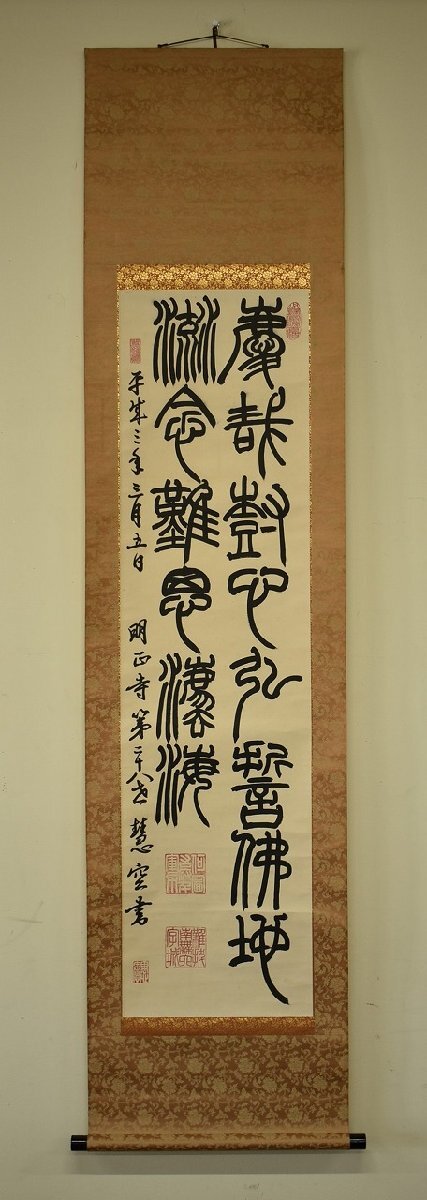 慶哉尌心弘誓佛地
流念難思灋海
平成三年三月五日　明正寺第二十八世　慧空書